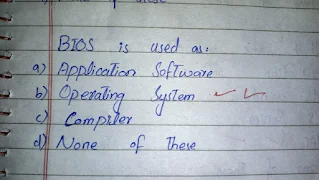 BIOS is used as:
a) Application Software
b) Operating System ✓ ✓
c) Compiler
d) None of These